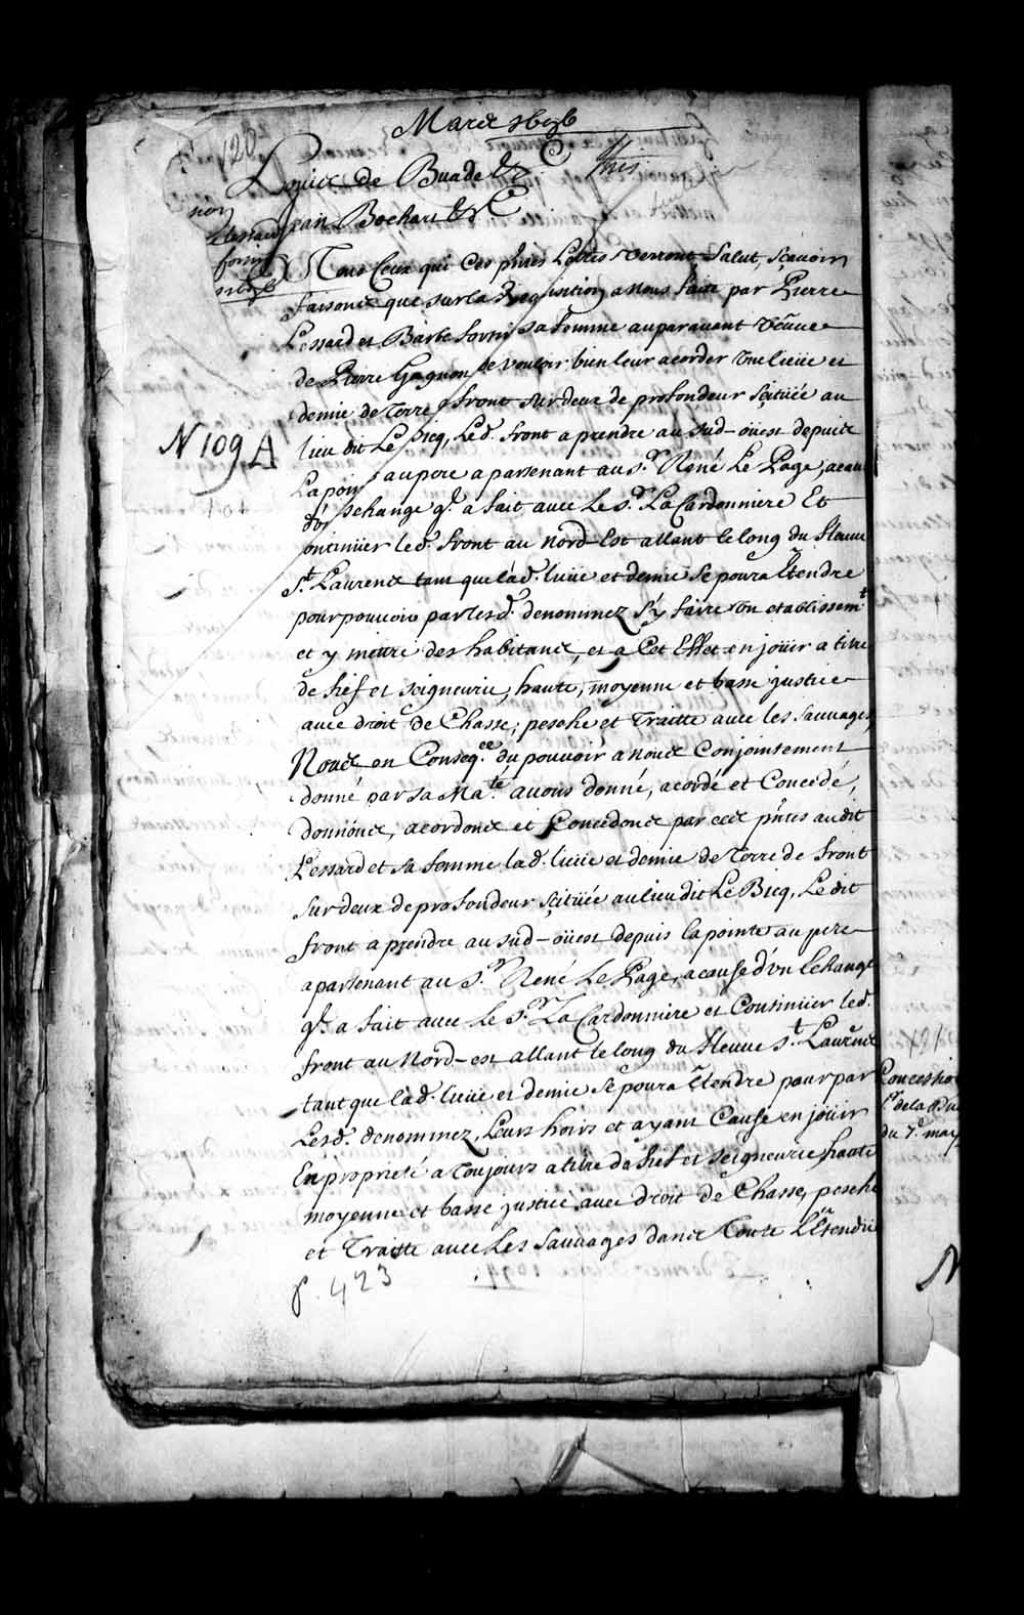 Mars 1696
120
Louis de Buade &c
Jean Bochart &c
A Tous Ceux qui Ces pntes Lettres Verront Salut, Scavoir
faisons que sur la Requisition a nous faite par Pierre
Lessard et Barbe fortin sa femme auparavant veuve
de Pierre Gagnon de vouloir bien leur acorder une lieüe et
demie de Terre front sur deux de profondeur scituée au
lieu dit Le Bicq, Led. front a prendre au sud-oüest depuis
La poin au pere apartenant au Sr. René Le Page, acau
d'un Echange ql. a fait avec Le Sr. La Cardonniere Et
ontinüer led. front au nord-Est allant le long du fleuve
St. Laurens tant que lad. lieüe et demie se poura Etendre
pour pouvoir par lesd. denommez s'y faire un etablissemt
et y mettre des habitans, et a Cet Effet en joüir a titre
de fief et seigneurie, haute, moyenne et basse justice
avec droit de Chasse, pesche et Traitte avec les sauvages,
Nous en Conseqce. du pouvoir a nous Conjointement
donné par sa Mate. avons donné, acordé et Concedé,
donnons, acordons et Concedons par ces pntes audit
Lessard et sa femme lad. lieüe et demie de Terre de front
sur deux de profondeur scituée au lieu dit Le Bicq, Le dit
front a prendre au sud-oüest depuis la pointe au pere
apartenant au Sr. René Le Page, a cause d'un Echange
ql. a fait avec le Sr. La Cardonniere et Continüer led.
front au Nord-est allant le long du fleuve St. Laurens
tant que lad. lieüe et demie se poura Etendre pour par
Lesd. denommez, Leurs hoirs et ayans Cause en joüir
En proprieté a Toujours a titre de fief et seigneurie haute
moyenne et basse justice avec droit de Chasse, pesche
et Traitte avec Les sauvages dans Toute L'Etendüe
p. 423
N 109 A
Concessio
de la
du 7e may